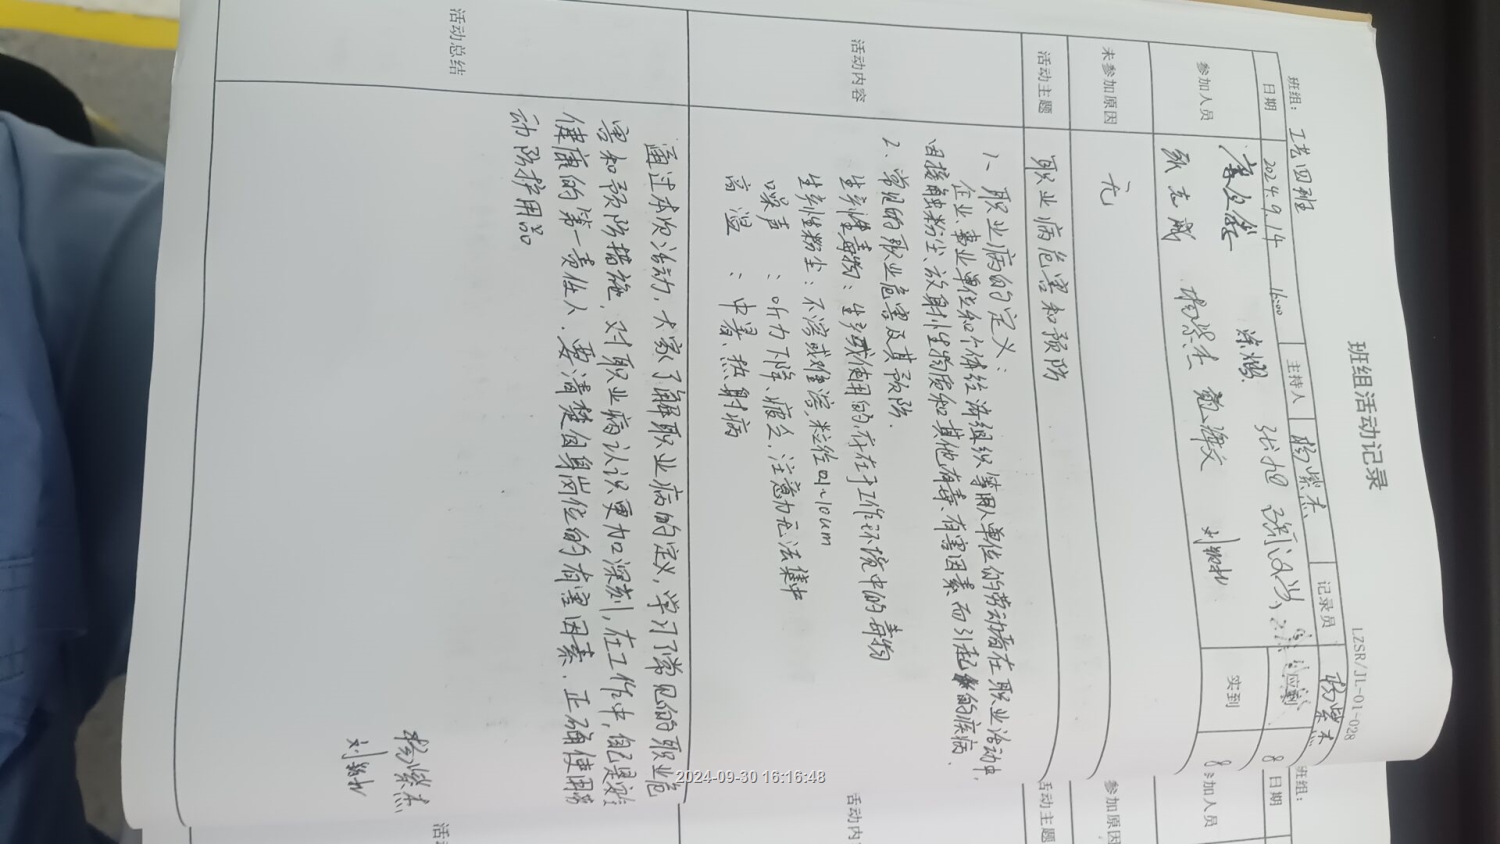 班组活动记录
LZSR/JL-01-028
班组：工艺四班
日期 2024.9.14 16:00 主持人 杨紫杰 记录员 杨紫杰
参加人员
张旭
应到 8
实到 8
未参加原因 无
活动主题 职业病危害和预防
活动内容
1、职业病的定义：
企业、事业单位和个体经济组织等用人单位的劳动者在职业活动中,
因接触粉尘、放射性物质和其他有毒、有害因素而引起的疾病.
2、常见的职业危害及其预防.
生产性毒物：生产或使用的,存在于工作环境中的毒物
生产性粉尘：不溶或难溶,粒径0.1~10um
噪声：听力下降、疲乏,注意力无法集中
高温：中暑、热射病
活动总结
通过本次活动,大家了解职业病的定义,学习了常见的职业危
害和预防措施,对职业病认识更加深刻,在工作中,自己是
健康的第一责任人,要清楚自身岗位的有害因素,正确使用劳
动防护用品
杨紫杰
班组：
日期
参加人员
参加原因
活动主题
活动内
活
2024-09-30 16:16:48